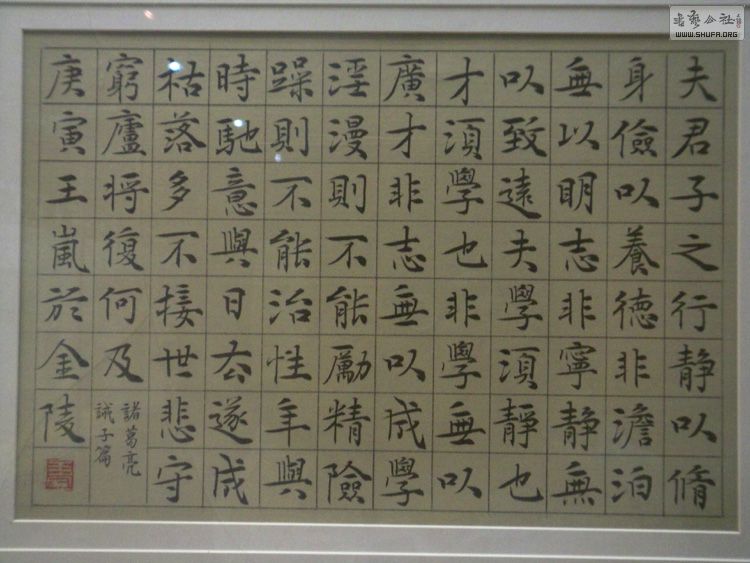 夫君子之行靜以脩
身儉以養德非澹泊
無以明志非寧靜無
以致遠夫學須靜也
才須學也非學無以
廣才非志無以成學
淫漫則不能勵精險
躁則不能治性年與
時馳意與日去遂成
枯落多不接世悲守
窮廬將復何及
諸葛亮
誡子篇
庚寅王嵐於金陵
書藝公社
WWW.SHUFA.ORG